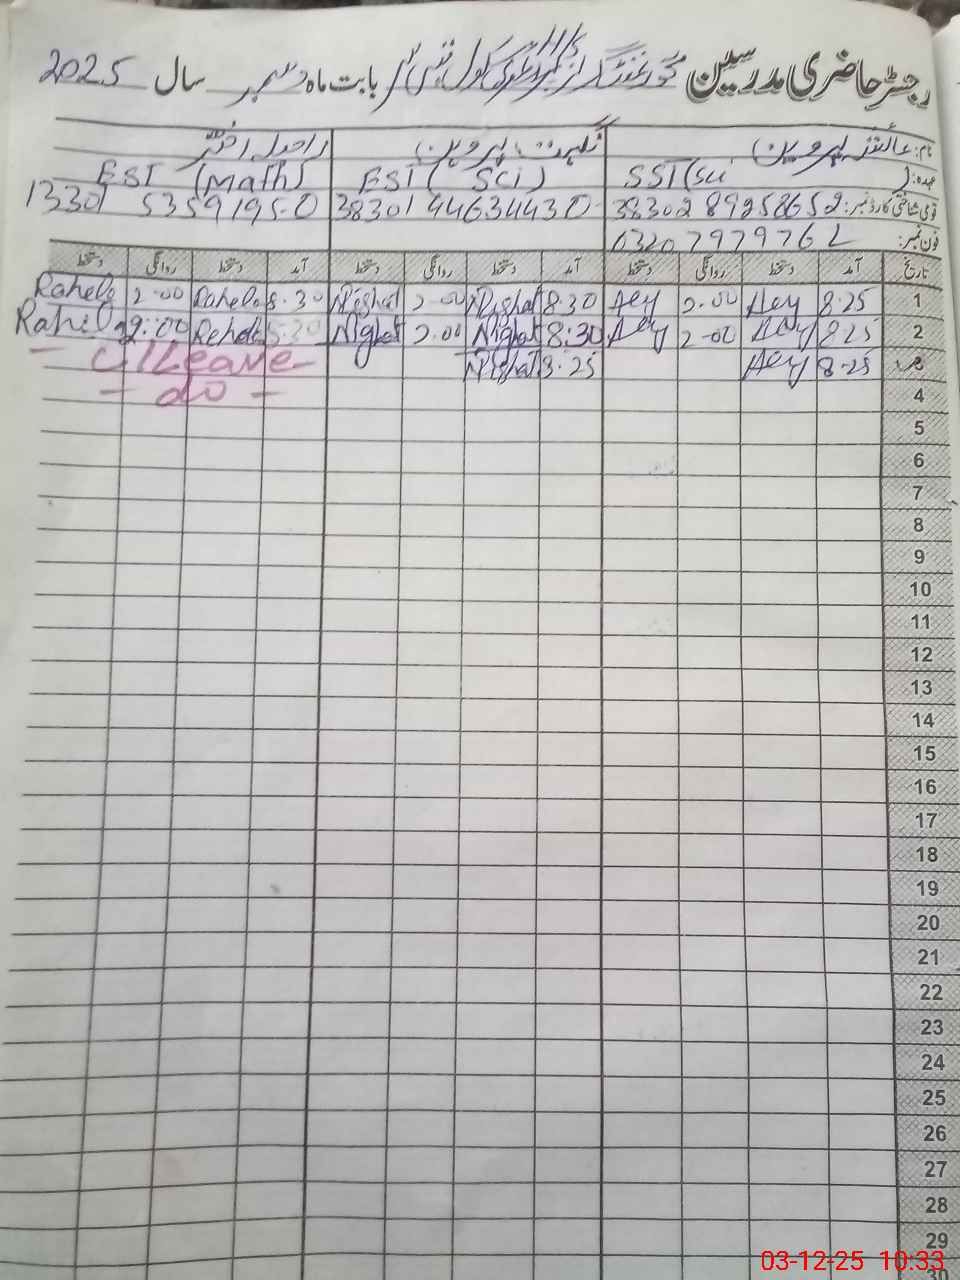 رجسٹر حاضری مدرسین گورنمنٹ گرلز سکول بابت ماہ دسمبر سال 2025
نام: عائشہ پروین نگہت پروین راحیلہ اختر
عہدہ: SST (Sci) EST (Sci) EST (Math)
قومی شناختی کارڈ نمبر: 38302 8925865 2 38301 4463443 0 13301 5359195-0
فون نمبر:
تاریخ آمد دستخط روانگی دستخط آمد دستخط روانگی دستخط آمد دستخط روانگی دستخط
1 8:25 2:00 8:30 Nighat 2:00 Nighat 8:30 Rahela 2:00 Rahela
2 8:25 2:00 8:30 Nighat 2:00 Nighat 2:00 Rahila
3 8:25 Nighat 8:25 - C/Leave -
4 - do -
5
6
7
8
9
10
11
12
13
14
15
16
17
18
19
20
21
22
23
24
25
26
27
28
29
30
03-12-25 10:33